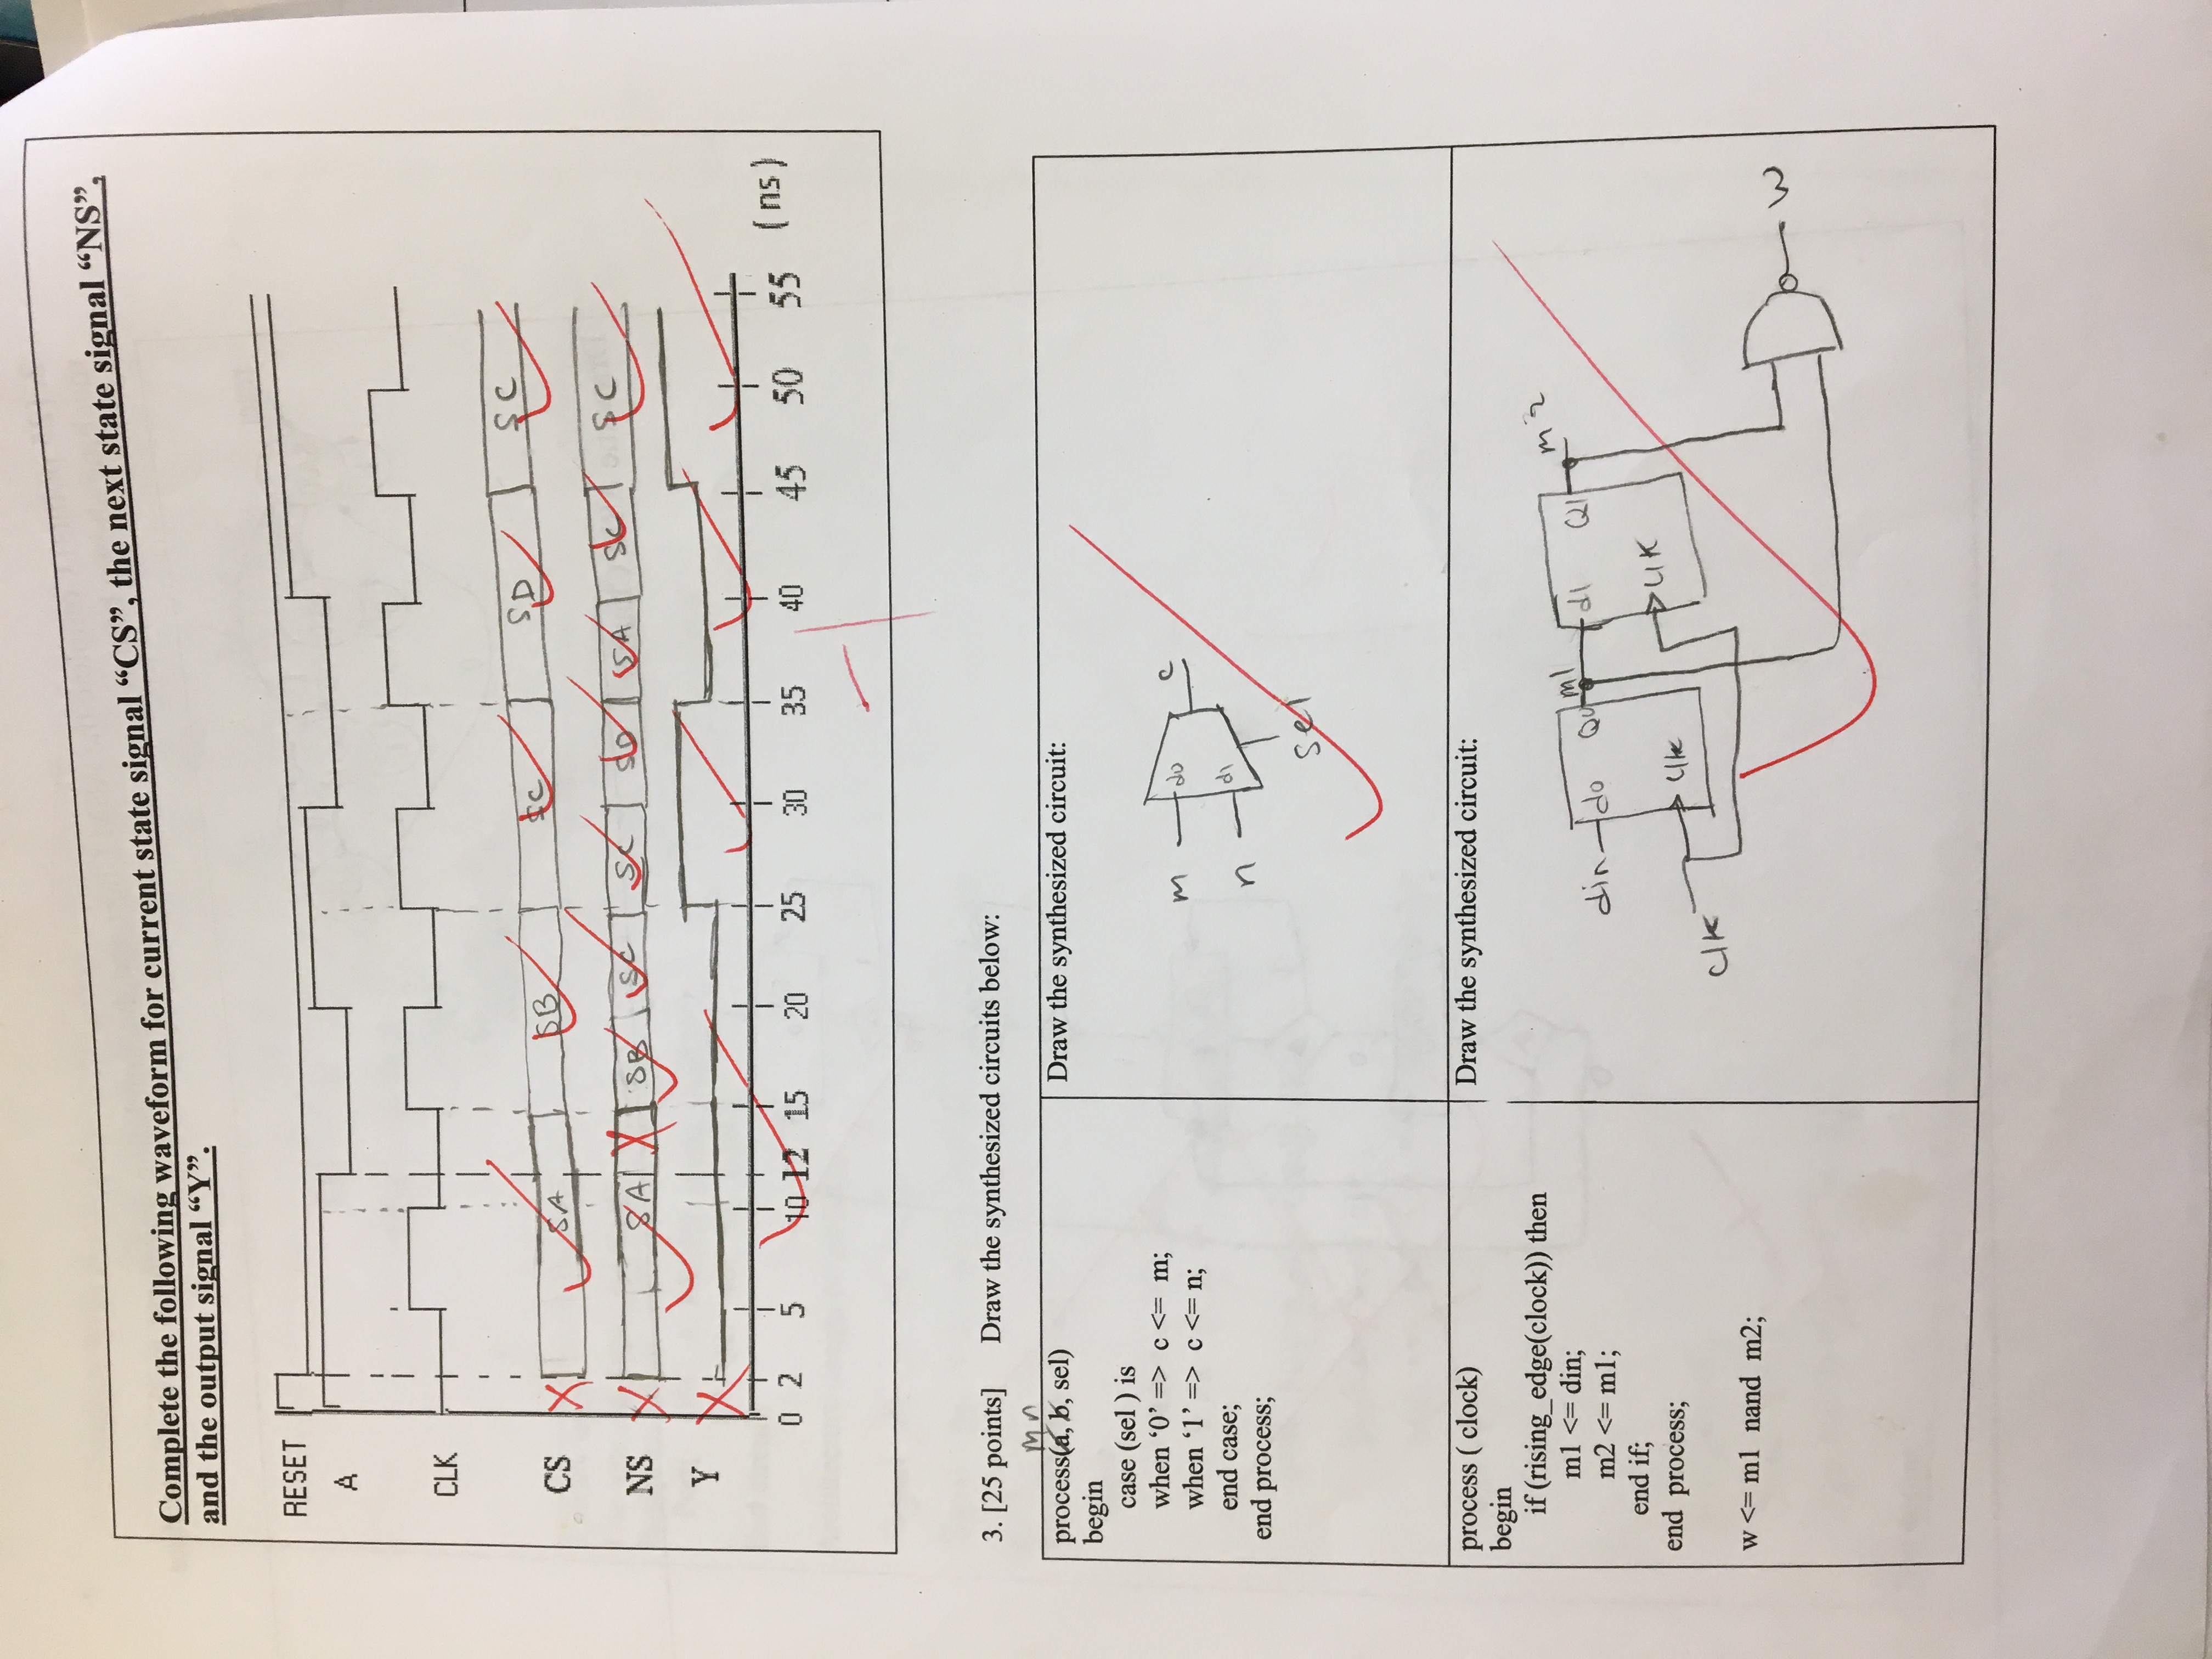 Complete the following waveform for current state signal “CS”, the next state signal “NS”,
and the output signal “Y”.
RESET
A
CLK
CS SA SB SC SD SC
NS SA SB SC SC SD SA SC SC
Y
0 2 5 10 12 15 20 25 30 35 40 45 50 55 (ns)
-1
3. [25 points] Draw the synthesized circuits below:
m n
process(a, b, sel)
begin
case (sel ) is
when ‘0’ => c <= m;
when ‘1’ => c <= n;
end case;
end process;
Draw the synthesized circuit:
m d0 c
n d1
sel
process ( clock)
begin
if (rising_edge(clock)) then
m1 <= din;
m2 <= m1;
end if;
end process;
w <= m1 nand m2;
Draw the synthesized circuit:
din d0 Q0 m1 d1 Q1 m2
clk clk clk
w